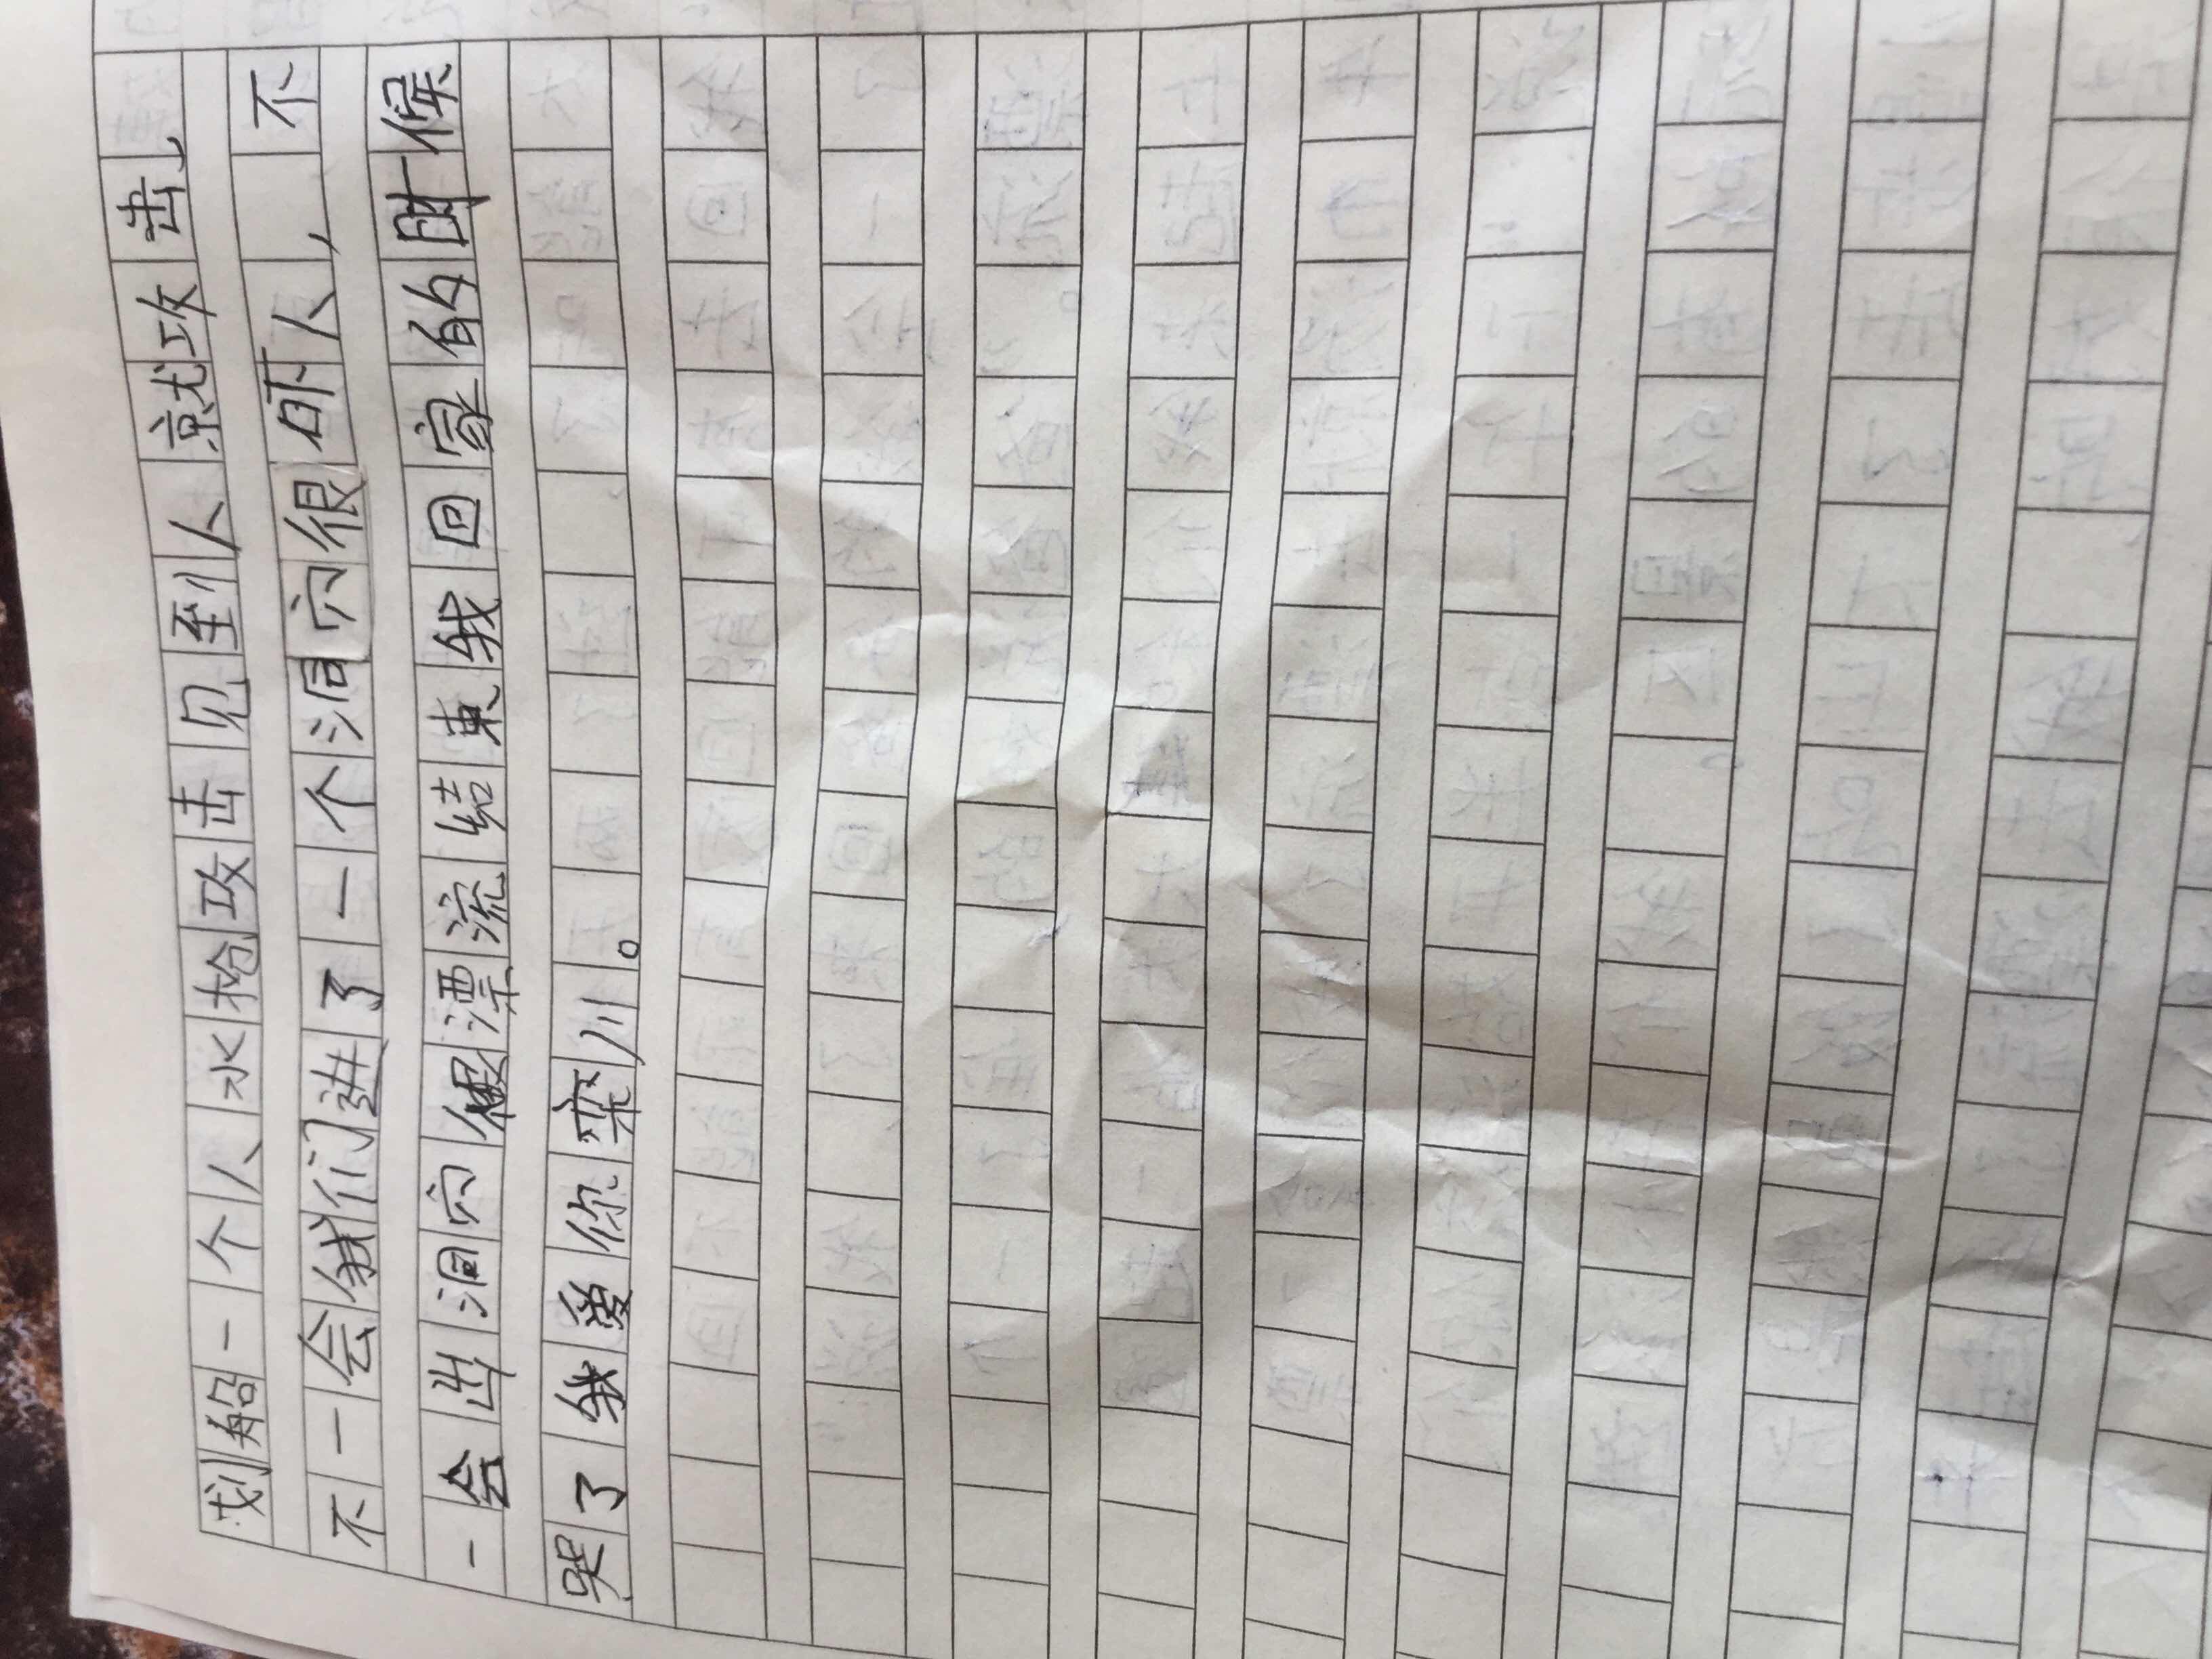 划船一个人水枪攻击见到人就攻击
不一会我们进了一个洞穴很吓人，不
一会出洞穴很漂流结束我回家的时候
哭了我爱你栾川。